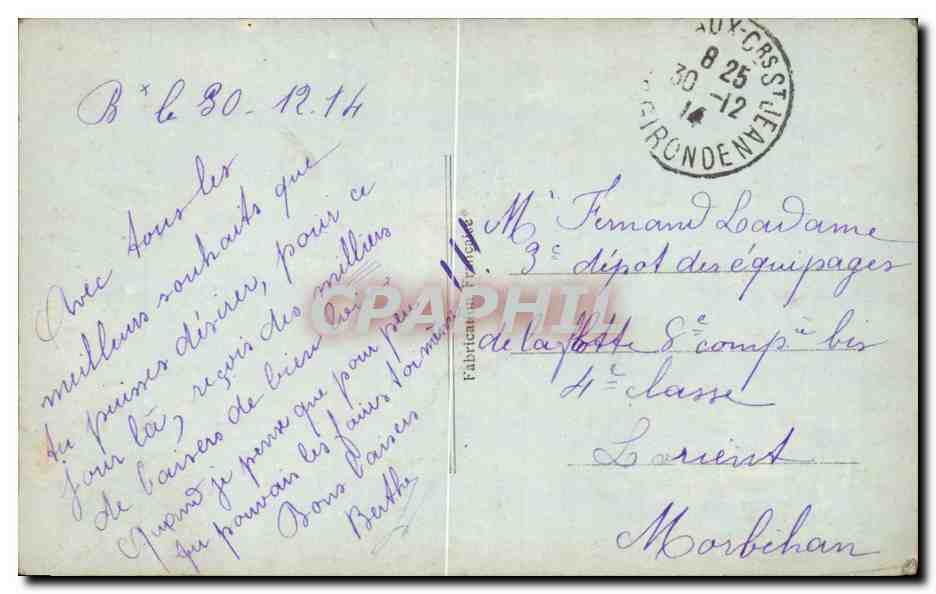 Bx le 30-12.14
Avec tous les
meilleurs souhaits que
tu puisses désirer, pour ce
jour là, reçois des milliers
de baisers de bien loin
Quand je pense que pour peu
tu pouvais les faire toi même
Bons baisers
Berthe
Fabrication Française
UX-CRS ST JEAN
8 25
30 -12
14
GIRONDE
Mr Fernand Ladame
3e dépôt des équipages
de la flotte 8e compie bis
4e classe
Lorient
Morbihan
CPAPHIL